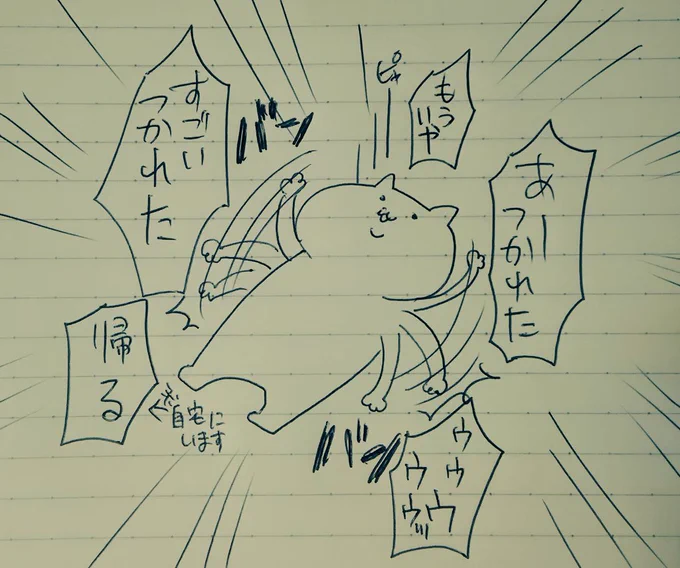 もう
いや
ピャ
あー
つかれた
バン
すごい
つかれた
帰る
※自宅に
います
バン
ウ
ウウ
ウウ